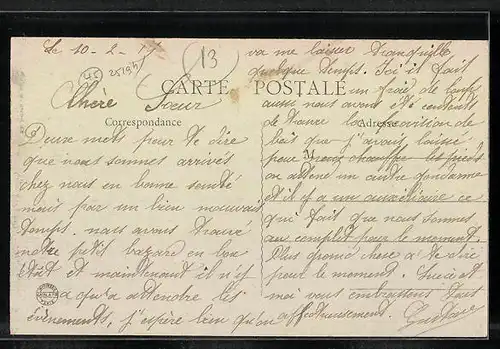 Le 10-2-19
13
45
25195
CARTE POSTALE
Correspondance
Adresse
Chère Sœur
Deux mots pour te dire
que nous sommes arrivés
chez nous en bonne santé
mais par un bien mauvais
temps. nous avons trouvé
notre petit bazard en bon
état et maintenant il n'y
a qu'a attendre les
évènements, j'espère bien qu'on
va me laisser tranquille
quelque temps. Ici il fait
un froid de loup
aussi nous avons été contents
de trouver la provision de
bois que j'avais laissé
pour nous chauffer les pieds
M
on attend un autre gendarme
et il y a un auxiliaire ce
qui fait que nous sommes
au complet pour le moment.
Plus grand chose a te dire
pour le moment. Lucie et
moi vous embrassons tous
affectueusement. Gustave